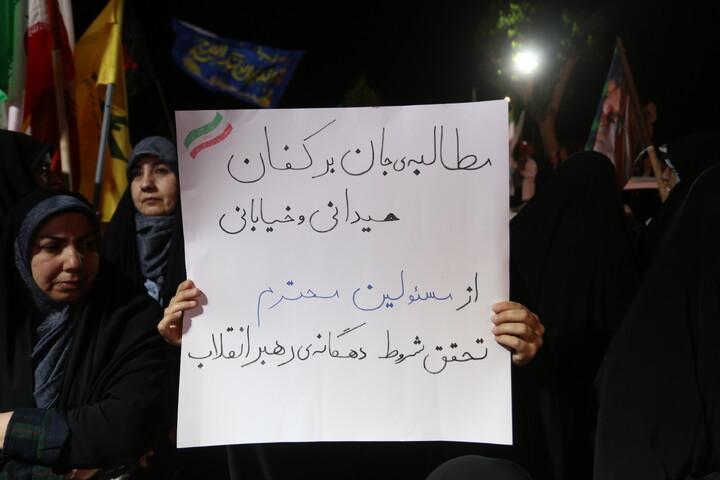 مطالبه‌ی جان بر کفان
میدانی و خیابانی
از مسئولین محترم
تحقق شروط دهگانه‌ی رهبر انقلاب